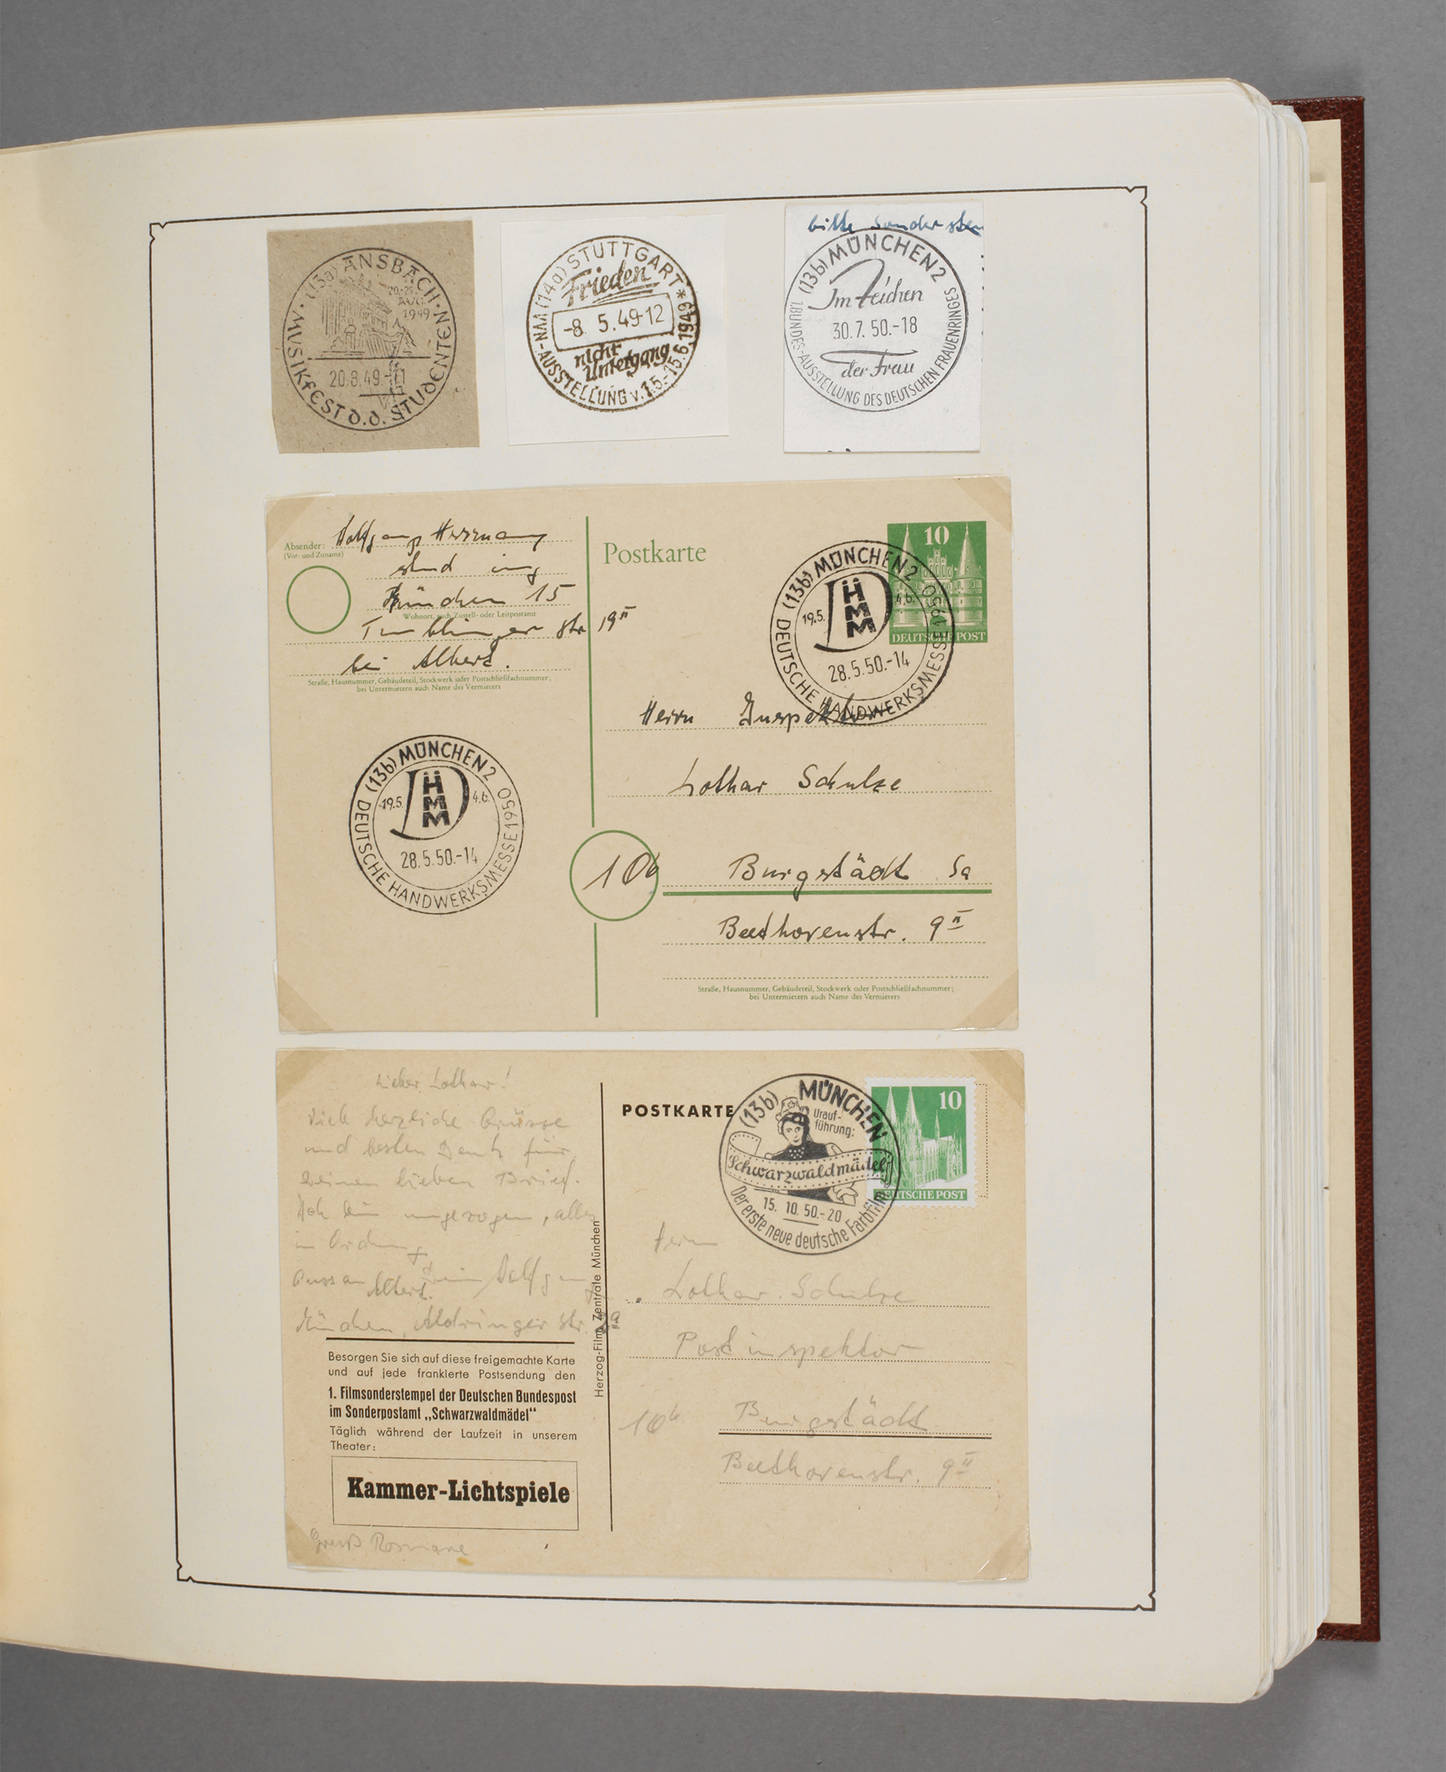 (13a) ANSBACH
20.-25.
AUG.
1949
20.8.49.-11
MUSIKFEST D.D. STUDENTEN
(14a) STUTTGART
Frieden
-8. 5.49-12
nicht
Untergang
VVN-AUSSTELLUNG v. 7.5.-15.6.1949
bitte Sonderstem
(13b) MÜNCHEN 2
Im Zeichen
30.7.50.-18
der Frau
1. BUNDES-AUSSTELLUNG DES DEUTSCHEN FRAUENRINGES
Absender: Wolfgang Herrmann
(Vor- und Zuname)
stud ing
München 15
Wohnort, auch Zustell- oder Leitpostamt
Tumblinger str 19 II
bei Albert.
Straße, Hausnummer, Gebäudeteil, Stockwerk oder Postschließfachnummer,
bei Untermietern auch Name des Vermieters
Postkarte
10
DEUTSCHE POST
(13b) MÜNCHEN 2
19.5. D HMM 4.6.
28.5.50.-14
DEUTSCHE HANDWERKSMESSE 1950
Herrn Inspektor
Lothar Schulze
10b Burgstädt Sa
Beethovenstr. 9 II
Straße, Hausnummer, Gebäudeteil, Stockwerk oder Postschließfachnummer;
bei Untermietern auch Name des Vermieters
(13b) MÜNCHEN 2
19.5. D HMM 4.6.
28.5.50.-14
DEUTSCHE HANDWERKSMESSE 1950
Lieber Lothar!
Viele herzliche Grüsse
und besten Dank für
deinen lieben Brief.
Ich bin umgezogen, alles
in Ordnung
dein Wolfgang
Albert.
München, Aldringer str. 9a
Besorgen Sie sich auf diese freigemachte Karte
und auf jede frankierte Postsendung den
1. Filmsonderstempel der Deutschen Bundespost
im Sonderpostamt „Schwarzwaldmädel“
Täglich während der Laufzeit in unserem
Theater:
Kammer-Lichtspiele
Gruß Rosmarie
Herzog-Film Zentrale München
POSTKARTE
(13b) MÜNCHEN
Urauf-
führung:
Schwarzwaldmädel
15. 10. 50.-20
Der erste neue deutsche Farbfilm
10
DEUTSCHE POST
Herrn
Lothar Schulze
Postinspektor
10b Burgstädt
Beethovenstr. 9 II